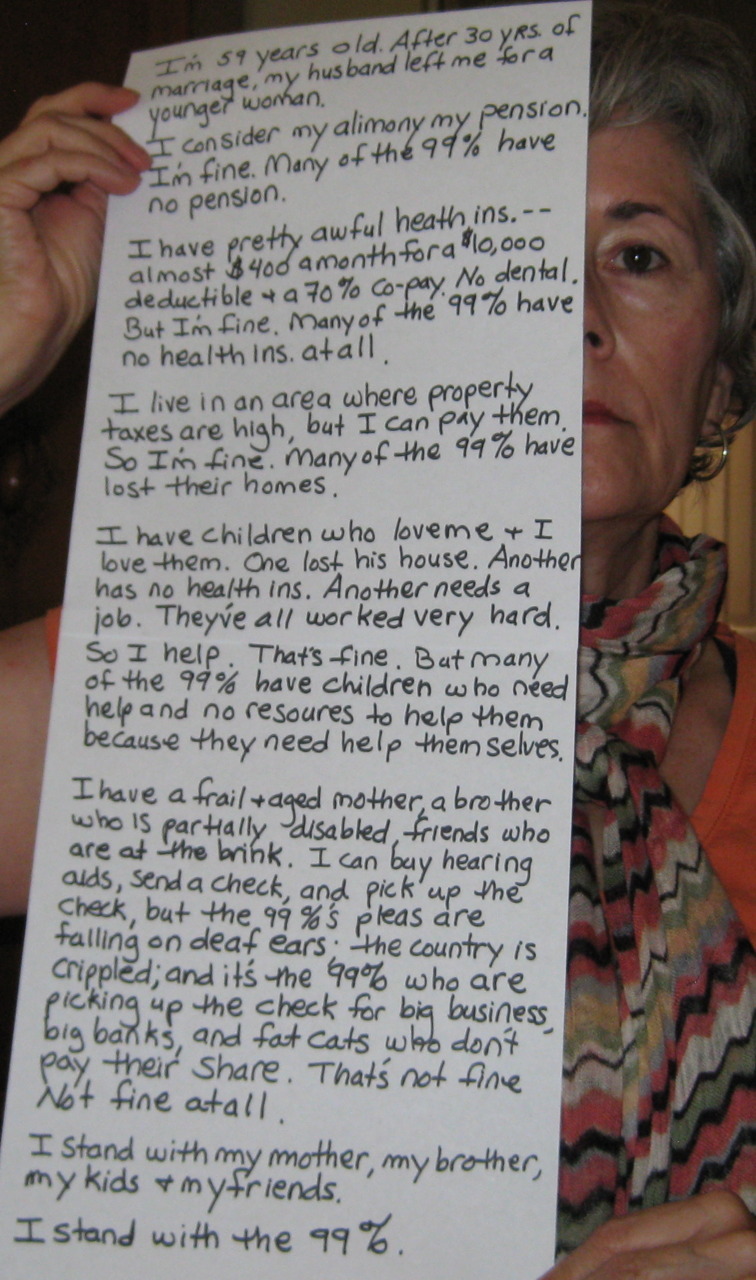 I'm 59 years old. After 30 yrs. of
marriage, my husband left me for a
younger woman.
I consider my alimony my pension.
I'm fine. Many of the 99% have
no pension.
I have pretty awful heath ins. --
almost $400 a month for a $10,000
deductible + a 70% co-pay. No dental.
But I'm fine. Many of the 99% have
no health ins. at all.
I live in an area where property
taxes are high, but I can pay them.
So I'm fine. Many of the 99% have
lost their homes.
I have children who love me + I
love them. One lost his house. Another
has no health ins. Another needs a
job. They've all worked very hard.
So I help. That's fine. But many
of the 99% have children who need
help and no resoures to help them
because they need help themselves.
I have a frail + aged mother, a brother
who is partially disabled, friends who
are at the brink. I can buy hearing
aids, send a check, and pick up the
check, but the 99%'s pleas are
falling on deaf ears; the country is
crippled; and it's the 99% who are
picking up the check for big business,
big banks, and fat cats who don't
pay their share. That's not fine
Not fine at all.
I stand with my mother, my brother,
my kids + my friends.
I stand with the 99%.